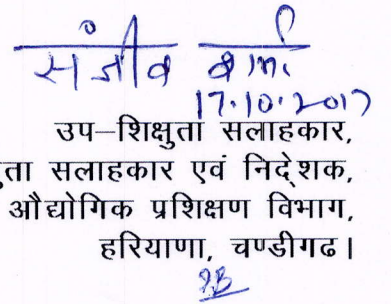 संजीव शर्मा
17.10.2017
उप–शिक्षुता सलाहकार,
ता सलाहकार एवं निदेशक,
औद्योगिक प्रशिक्षण विभाग,
हरियाणा, चण्डीगढ।